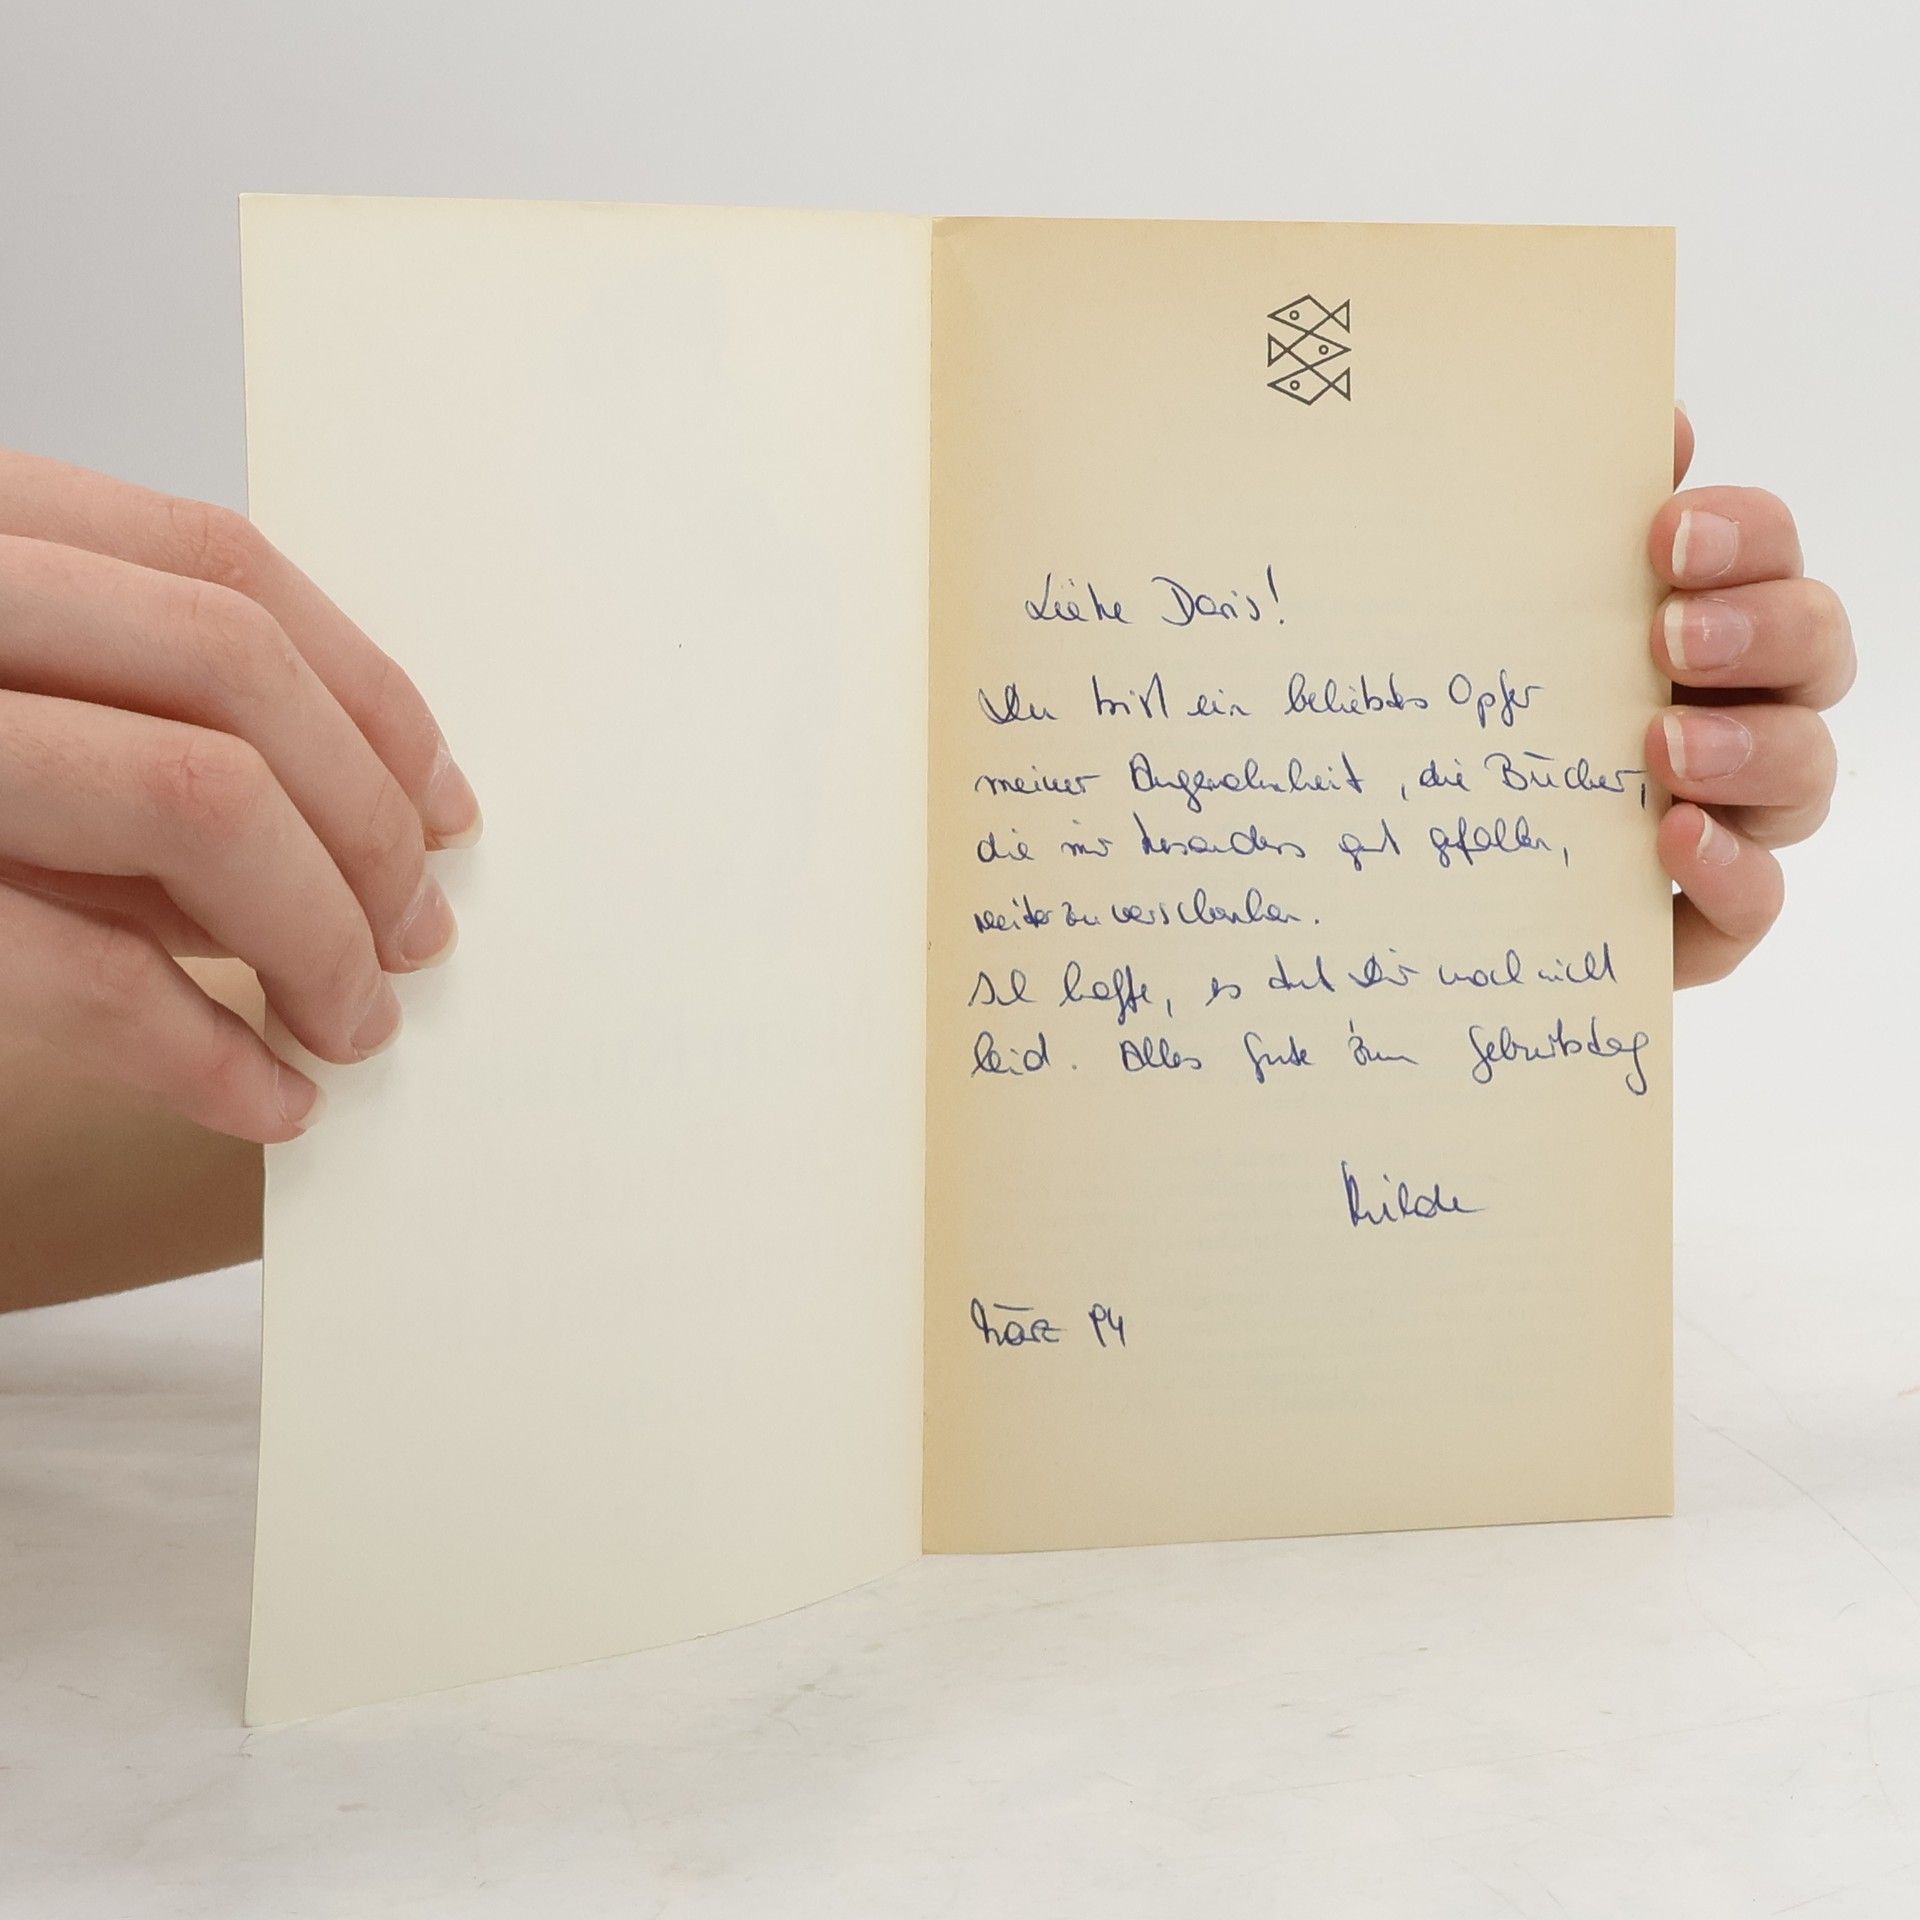 Liebe Doris!
Du bist ein beliebtes Opfer
meiner Angewohnheit, die Bücher,
die mir besonders gut gefallen,
weiterzuverschenken.
Ich hoffe, es tut Dir noch nicht
leid. Alles Gute zum Geburtstag
Hilde
März 94